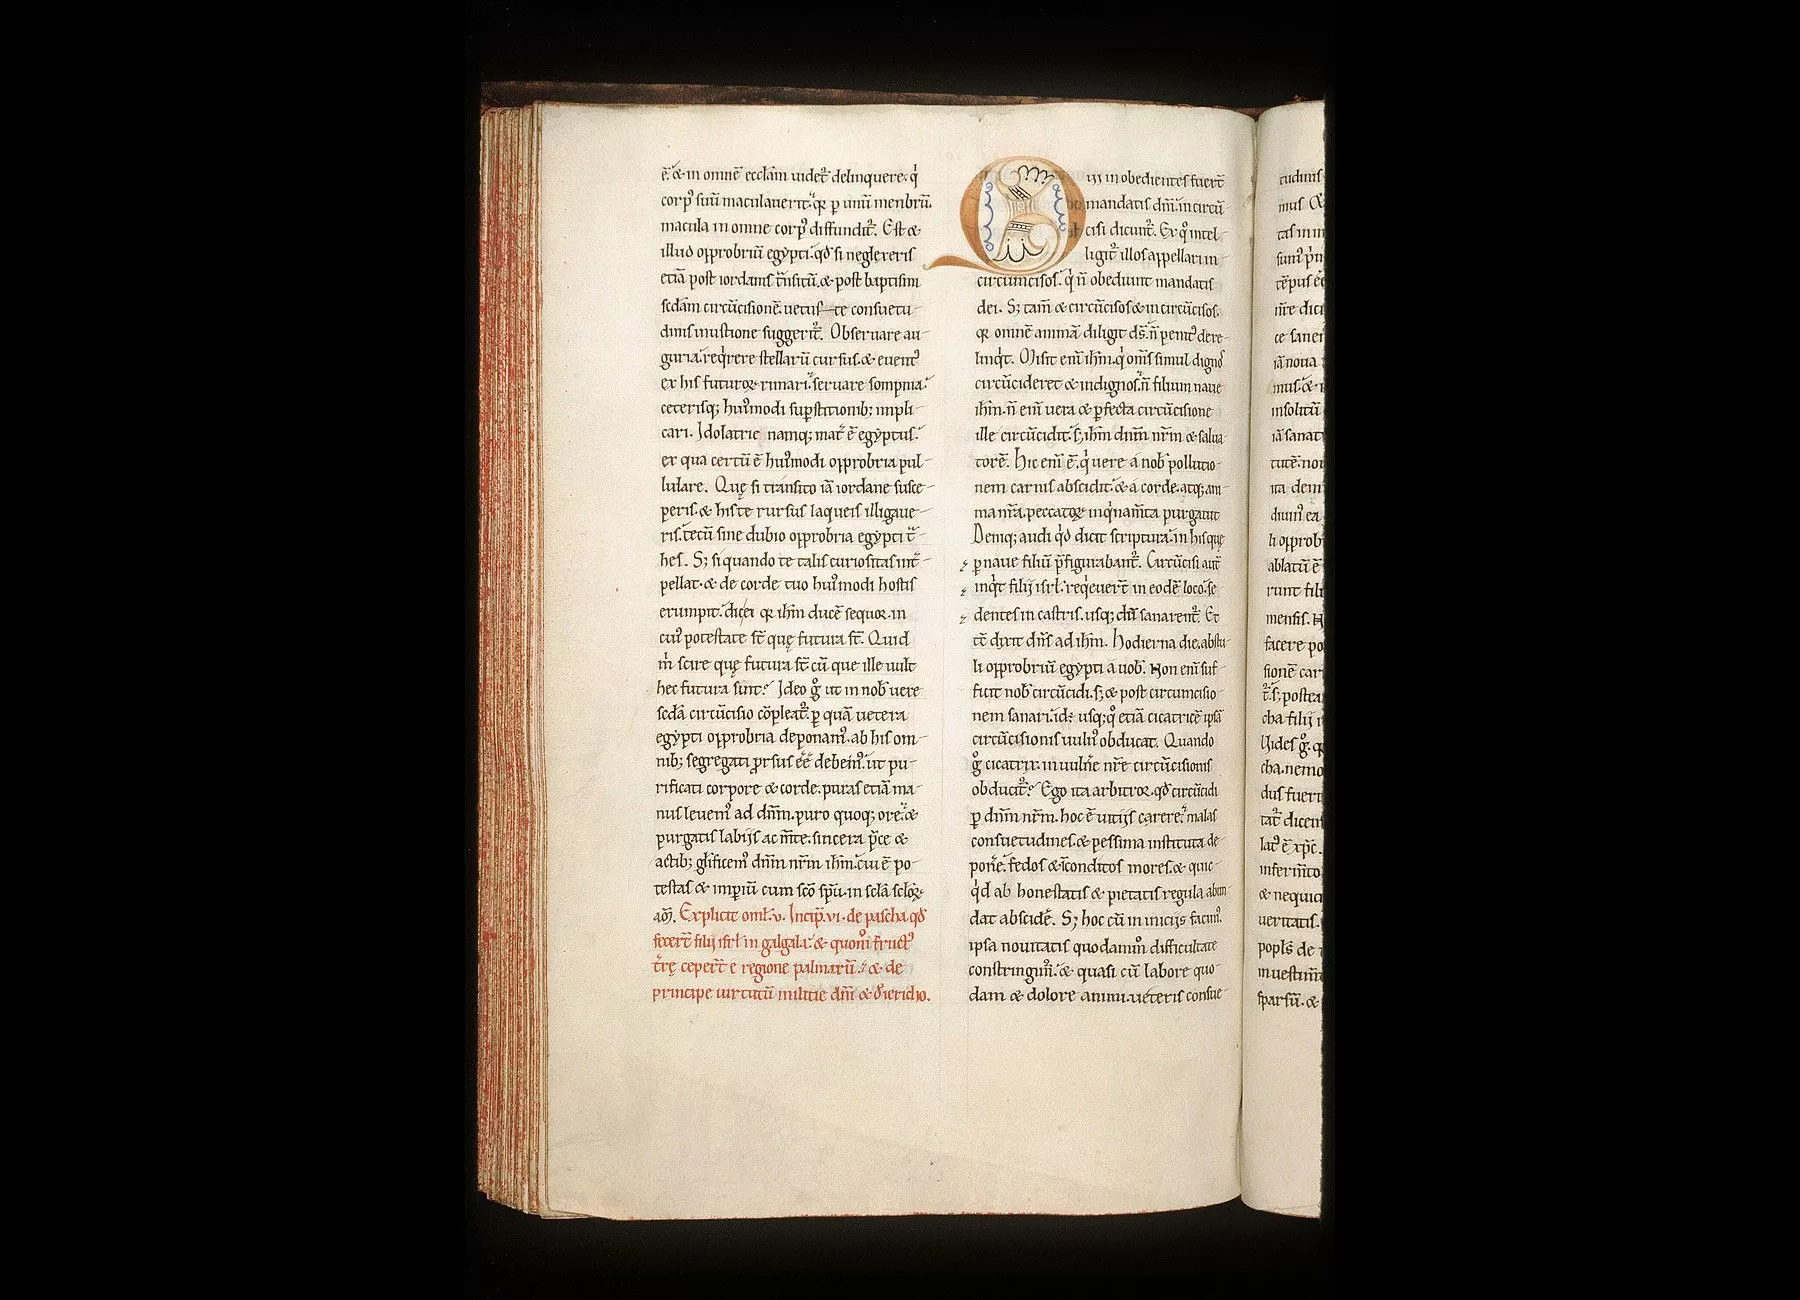 ē. & in omnē ecclām uideť delinquere: q̇
corp᷒ suū maculauerit. qr̄ p unū menbrū.
macula in omne corp᷒ diffundiť. Est &
illud opprobriū egẏpti. qđ si neglexeris
etiā post iordanis t̄nsitū. & post baptismi
sc̄dam circūcisionē. uetus te consuetu-
dinis inustione suggeriť. Obseruare au-
guria. req̇rere stellarū cursus. & euent᷒
ex his futuroꝝ rimari. seruare sompnia.
ceterisq; hui᷒modi sup̄stitionib; impli-
cari. Idolatrie namq; mať ē egẏptus.
ex qua certū ē hui᷒modi opprobria pul-
lulare. Quę si transito iā iordane susce-
peris. & his te rursus laqueis illigaue-
ris. tecū sine dubio opprobria egẏpti t̄-
hes. S; si quando te talis curiositas int̄-
pellat. & de corde tuo hui᷒modi hostis
erumpit. dicei qr̄ ihm̄ ducē sequor. in
cui᷒ potestate st̄ quę futura st̄. Quid
m̊ scire quę futura st̄ cū que ille uult
hec futura sunt? Ideo g̊ ut in nob᷒ uere
sc̄da circūcisio cōpleať. p quā uetera
egẏpti opprobria deponam᷒. ab his om-
nib; segregati prsus eē debem᷒. ut pu-
rificati corpore & corde. puras etiā ma-
nus leuem᷒ ad dn̄m. puro quoq; ore. &
purgatis labijs ac m̄te. sincera p̄ce &
actib; gl̄ificem᷒ dn̄m nr̄m ihm̄. cui ē po-
testas & imp̄iū cum sc̄o sp̄u. in sc̄la sc̄loꝝ
am̄. Explicit oml̄. v. Incip̄. vi. de pascha. qđ
fecert̄ filij isrl̄ in galgala. & quom̊ fruct᷒
t̄rę cepert̄ e regione palmarū. & de
principe uirtutū militie dn̄i & đ iericho.
Qui inobedientes fuert̄
mandatis dn̄i. incircū-
cisi dicunť. Ex q̊ intel-
ligiť illos appellari in-
circumcisos. q̇ n̄ obediunt mandatis
dei. S; tam̄ & circūcisos & incircūcisos.
qr̄ omnē animā diligit ds̄. n̄ penit᷒ dere-
linq̇t. Misit enī ihm̄. q̇ om̄s simul dignos
circūcideret & indignos. n̄ filium naue
ihm̄. n̄ enī uera & pfecta circūcisione
ille circūcidit. s; ihm̄ dn̄m nr̄m & salua-
torē. Hic enī ē. q̇ uere a nob᷒ pollutio-
nem carnis abscidit. & a corde. atq; ani-
ma nr̄a. peccatoꝝ inq̇nam̄ta purgauit
Deniq; audi qđ dicit scriptura. in his que
p naue filiū p̄figurabanť. Circūcisi aut̄
inq̇t filij isrl̄. req̇euert̄ in eodē loco. se
dentes in castris. usq; dū sanarenť. Et
tc̄ dixit dn̄s ad ihm̄. Hodierna die. abstu
li opprobriū egẏpti a uob᷒. Non enī suf-
fuit nob᷒ circūcidi. s; & post circumcisio-
nem sanari. id. usq; q̊ etiā cicatricē ipsā
circūcisionis uuln᷒ obducat. Quando
g̊ cicatrix in uuln̄e nr̄e circūcisionis
obduciť? Ego ita arbitror. qđ circūcidi
p dn̄m nr̄m. hoc ē uitijs carere. malas
consuetudines. & pessima instituta de-
pon̄e. fedos & īconditos mores. & quic-
q̇d ab honestatis & pietatis regula abun-
dat abscidē. S; hoc cū in inicijs facim᷒.
ipsa nouitatis quodam̄ difficultate
constringim̄. & quasi cū labore quo-
dam & dolore animi. ueteris consue-